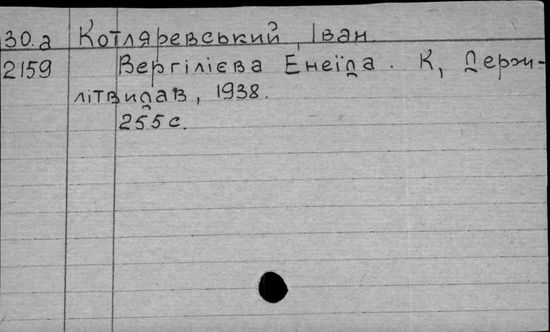 30.а Котляревський, Іван
2159 Вергілієва Енеїда. К, Держ-
літвидав, 1938.
255 с.